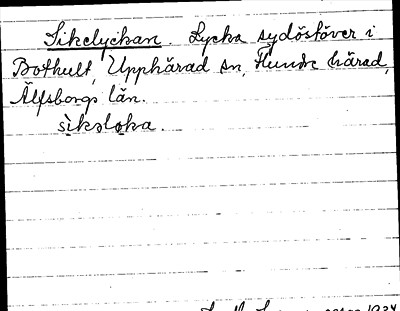 Sikelyckan. Lycka sydöstöver i
Bothult, Upphärad sn, Flundre härad,
Älfsborgs län.
sìksloka.
1934